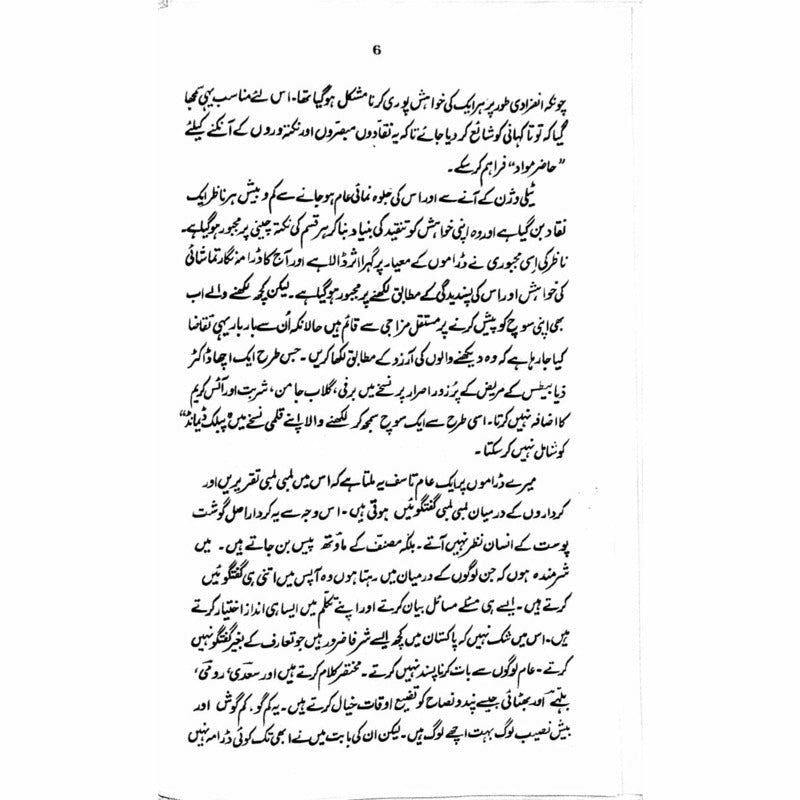 6
چونکہ انفرادی طور پر ہر ایک کی خواہش پوری کرنا مشکل ہو گیا تھا۔ اس لئے مناسب یہی سمجھا
گیا کہ توتا کہانی کو شائع کر دیا جائے تاکہ یہ نقادوں مبصروں اور نکتہ وروں کے آنکنے کیلئے
”حاضر مواد“ فراہم کر سکے۔
ٹیلی وژن کے آنے سے اور اس کی جلوہ نمائی عام ہو جانے سے کم و بیش ہر ناظر ایک
نقاد بن گیا ہے اور وہ اپنی خواہش کو تنقید کی بنیاد بنا کر ہر قسم کی نکتہ چینی پر مجبور ہو گیا ہے۔
ناظر کی اِسی مجبوری نے ڈراموں کے معیار پر گہرا اثر ڈالا ہے اور آج کا ڈرامہ نگار تماشائی
کی خواہش اور اس کی پسندیدگی کے مطابق لکھنے پر مجبور ہو گیا ہے۔ لیکن کچھ لکھنے والے اب
بھی اپنی سوچ کو پیش کرنے پر مستقل مزاجی سے قائم ہیں حالانکہ اُن سے بار بار یہی تقاضا
کیا جا رہا ہے کہ وہ دیکھنے والوں کی آرزو کے مطابق لکھا کریں۔ جس طرح ایک اچھا ڈاکٹر
ذیابیطس کے مریض کے پُر زور اصرار پر نسخے میں برفی، گلاب جامن، شربت اور آئس کریم
کا اضافہ نہیں کرتا۔ اسی طرح سے ایک سوچ سمجھ کر لکھنے والا اپنے قلمی نسخے میں ”پبلک ڈیمانڈ“
کو شامل نہیں کر سکتا۔
میرے ڈراموں پر ایک عام تاسف یہ ملتا ہے کہ اس میں لمبی لمبی تقریریں اور
کرداروں کے درمیان لمبی لمبی گفتگوئیں ہوتی ہیں۔ اس وجہ سے یہ کردار اصل گوشت
پوست کے انسان نظر نہیں آتے۔ بلکہ مصنف کے ماؤتھ پیس بن جاتے ہیں۔ میں
شرمندہ ہوں کہ جن لوگوں کے درمیان میں رہتا ہوں وہ آپس میں اتنی ہی گفتگوئیں
کرتے ہیں۔ ایسے ہی مسئلے مسائل بیان کرتے اور اپنے تکلّم میں ایسا ہی انداز اختیار کرتے
ہیں۔ اس میں شک نہیں کہ پاکستان میں کچھ ایسے شرفا ضرور ہیں جو تعارف کے بغیر گفتگو نہیں
کرتے۔ عام لوگوں سے بات کرنا پسند نہیں کرتے۔ مختصر کلام کرتے ہیں اور سعدیؒ، رومیؒ،
بلہےؒ اور بھٹائی جیسے پند و نصائح کو تضیع اوقات خیال کرتے ہیں۔ یہ کم گو، کم گوش اور
بیش نصیب لوگ بہت اچھے لوگ ہیں۔ لیکن ان کی بابت میں نے ابھی تک کوئی ڈرامہ نہیں